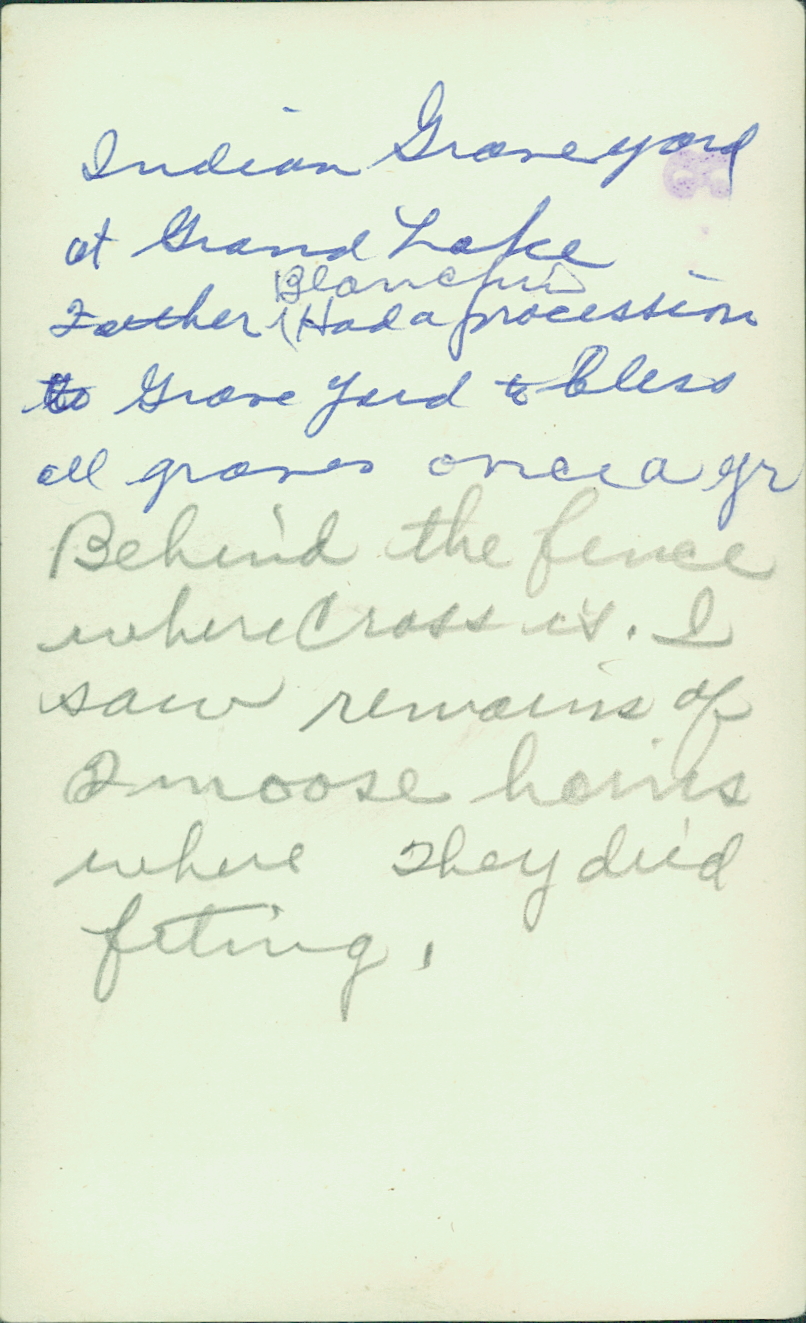 Indian Graveyard
at Grand Lake
Blanchin
Father Had a procession
to Grave Yard to bless
all graves once a yr
Behind the fence
where Cross is. I
saw remains of
2 moose horns
where They died
fiting.